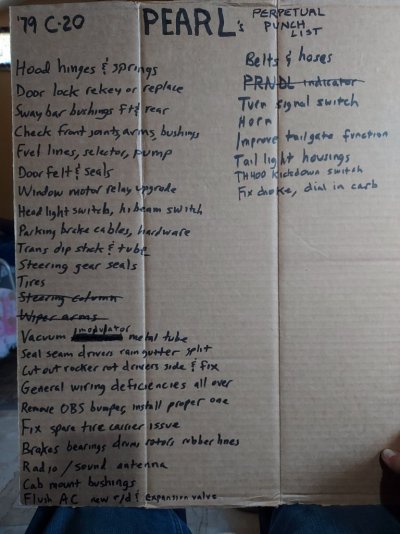 '79 C-20
PEARL's PERPETUAL
PUNCH
LIST
Hood hinges & springs
Door lock rekey or replace
Sway bar bushings ft & rear
Check front joints, arms, bushings
Fuel lines, selector, pump
Door felt & seals
Window motor relay upgrade
Headlight switch, hi beam switch
Parking brake cables, hardware
Trans dip stick & tube
Steering gear seals
Tires
Steering column
Wiper arms
Vacuum modulator metal tube
Seal seam drivers rain gutter split
Cut out rocker rot drivers side & fix
General wiring deficiencies all over
Remove OBS bumper, install proper one
Fix spare tire carrier issue
Brakes bearings drums rotors rubber lines
Radio / sound antenna
Cab mount bushings
Flush AC new r/d & expansion valve
Belts & hoses
PRNDL indicator
Turn signal switch
Horn
Improve tailgate function
Tail light housings
TH400 kickdown switch
Fix choke, dial in carb